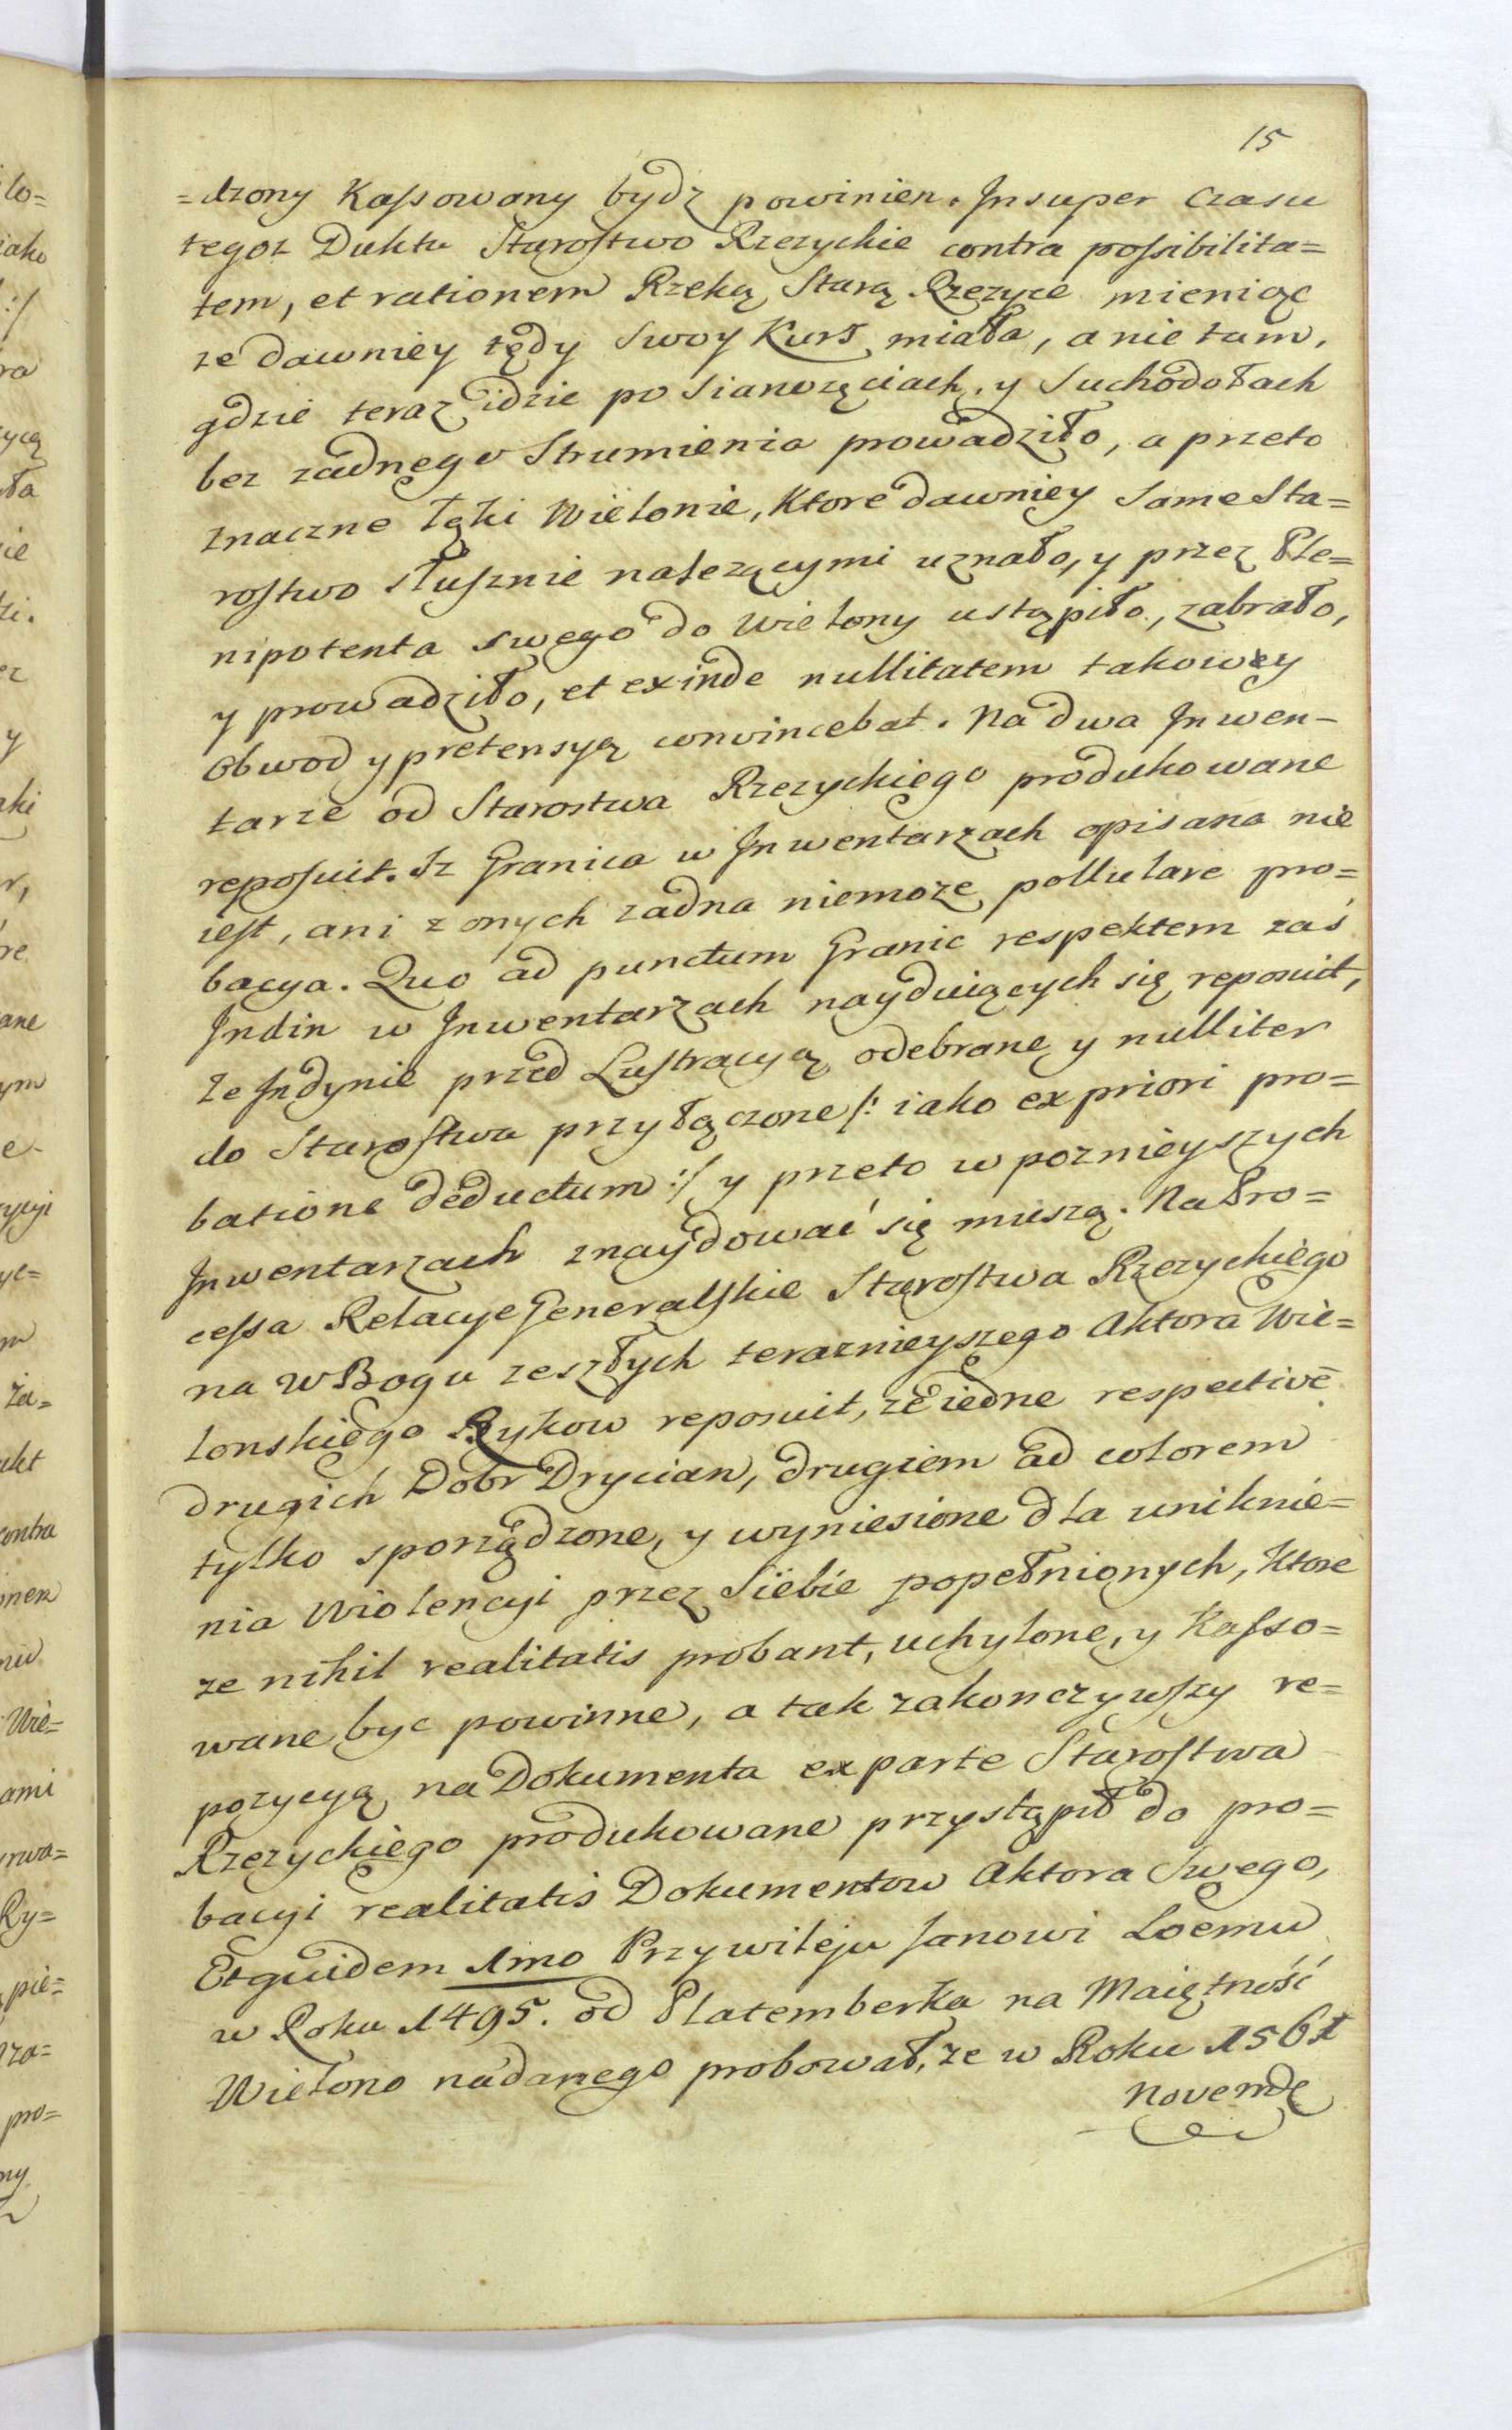 15
=dzony Kassowany bydz powinien. Insuper Czasu
tegoz Duktu Starostwo Rzezyckie contra possibilita=
tem, et rationem Rzeką Starą Rzezyce mieniąc
ze dawniey tędy swoy Kurs miała, a nie tam,
gdzie teraz idzie po sianozęciach, y Suchodołach
bez zadnego Strumienia prowadziło, a przeto
znaczne Łąki Wielonie, Ktore dawniey same Sta=
rostwo słusznie nalezącymi uznało, y przez Ple=
nipotenta swego do Wielony ustąpiło, zabrało,
y prowadziło, et exinde nullitatem takowey
Obwod y pretensyą convincebat. Na dwa Inwen=
tarze od Starostwa Rzezyckiego produkowane
reposuit. Iz Granica w Inwentarzach opisana nie
iest, ani z onych zadna niemoze pollulare pro=
bacya. Quo ad punctum Granic respektem zaś
Indin w Inwentarzach nayduiących się reposuit,
Ze Indynie przed Lustracyą odebrane y nulliter
do Starostwa przyłączone /: iako ex priori pro=
batione deductum :/ y przeto w poznieyszych
Inwentarzach znaydować się muszą. Na Pro=
cessa Relacye Generalskie Starostwa Rzezyckiego
na w Bogu zeszłych teraznieyszego Aktora Wie=
lonskiego Rykow reposuit, ze iedne respective
drugich Dobr Drycian, drugiem ad colorem
tylko sporządzone, y wyniesione dla uniknie=
nia Wiolencyi przez Siebie popełnionych, Ktore
ze nihil realitatis probant, uchylone, y Kasso=
wane byc powinne, a tak zakonczywszy re=
pozycyą na Dokumenta ex parte Starostwa
Rzezyckiego produkowane przystąpił do pro=
bacyi realitatis Dokumentow Aktora Swego,
Et quidem 1mo Przywileju Janowi Loemu
w Roku 1495. od Platemberka na Maiętność
Wielono nadanego probował, ze w Roku 1561
Novemde